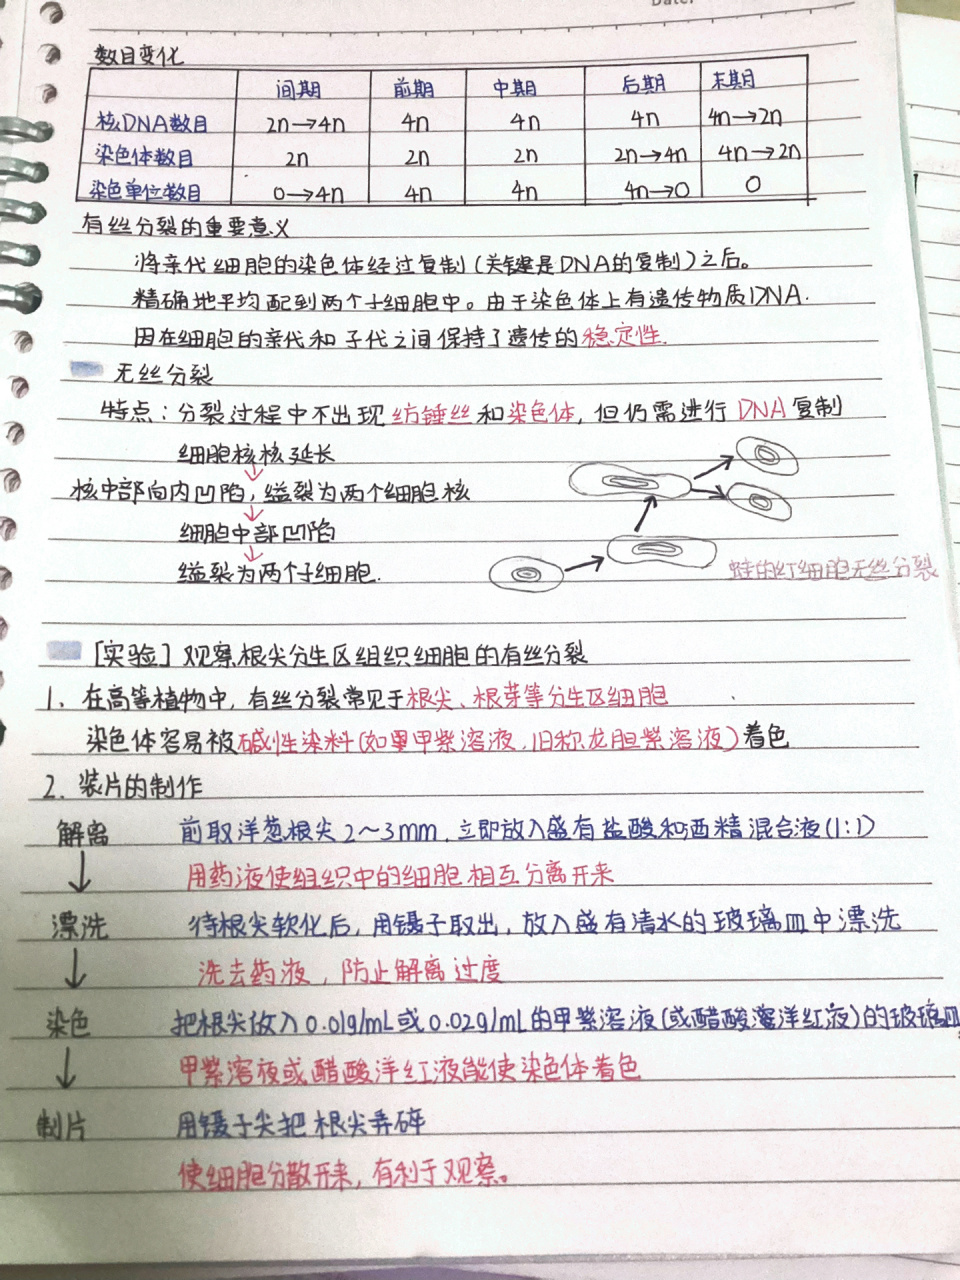 Date:
数目变化
间期 前期 中期 后期 末期
核DNA数目 2n→4n 4n 4n 4n 4n→2n
染色体数目 2n 2n 2n 2n→4n 4n→2n
染色单位数目 0→4n 4n 4n 4n→0 0
有丝分裂的重要意义
将亲代细胞的染色体经过复制(关键是DNA的复制)之后。
精确地平均配到两个子细胞中。由于染色体上有遗传物质DNA.
因在细胞的亲代和子代之间保持了遗传的稳定性.
无丝分裂
特点:分裂过程中不出现纺锤丝和染色体,但仍需进行DNA复制
细胞核核延长
↓
核中部向内凹陷,缢裂为两个细胞核
↓
细胞中部凹陷
↓
缢裂为两个子细胞.
蛙的红细胞无丝分裂
[实验]观察根尖分生区组织细胞的有丝分裂
1、在高等植物中,有丝分裂常见于根尖、根芽等分生区细胞
染色体容易被碱性染料(如甲紫溶液,旧称龙胆紫溶液)着色
2.装片的制作
解离 前取洋葱根尖2~3mm,立即放入盛有盐酸和酒精混合液(1:1)
↓ 用药液使组织中的细胞相互分离开来
漂洗 待根尖软化后,用镊子取出,放入盛有清水的玻璃皿中漂洗
↓ 洗去药液,防止解离过度
染色 把根尖放入0.01g/mL或0.02g/mL的甲紫溶液(或醋酸洋红液)的玻璃皿
↓ 甲紫溶液或醋酸洋红液能使染色体着色
制片 用镊子尖把根尖弄碎
使细胞分散开来,有利于观察。